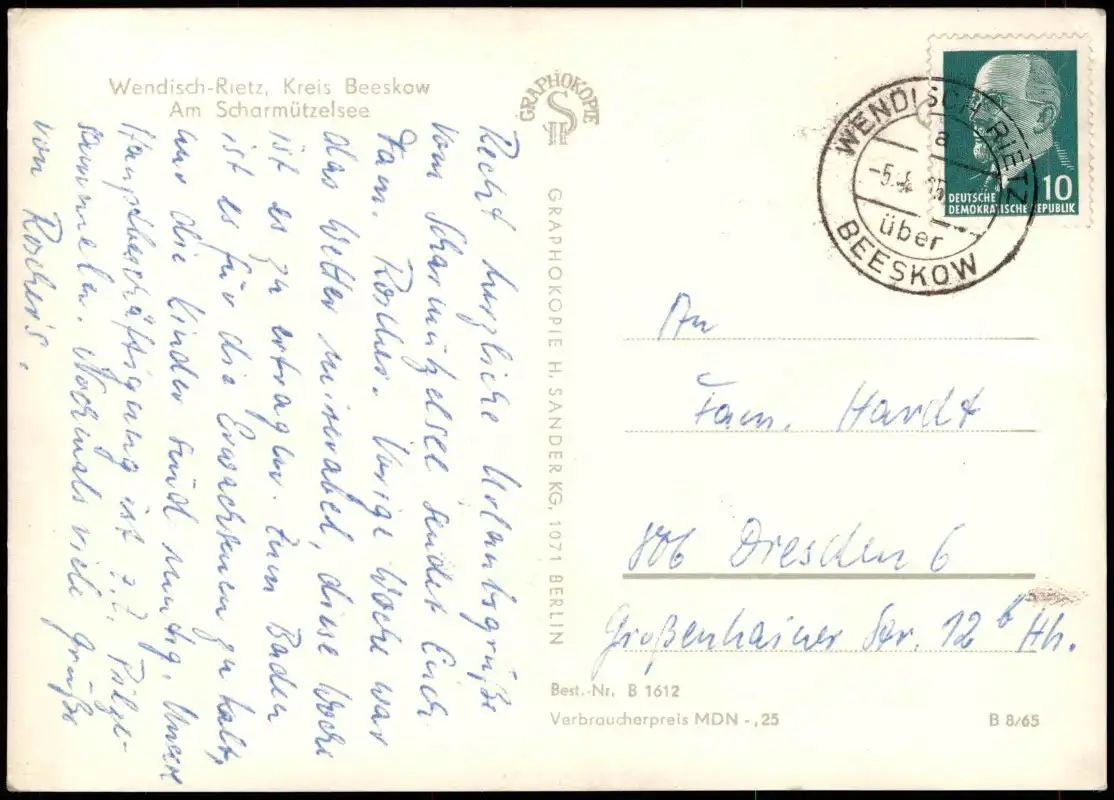 Wendisch-Rietz, Kreis Beeskow
Am Scharmützelsee
GRAPHOKOPIE
H S
Recht herzliche Urlaubsgrüße
vom Scharmützelsee sendet Euch
Fam. Roscher. Vorige Woche war
das Wetter miserabel, diese Woche
ist es zu ertragen. Zum Baden
ist es für die Erwachsenen zu kalt,
nur die Kinder sind mutig. Unsere
Hauptbeschäftigung ist z.Z. Pilze-
sammeln. Nochmals viele Grüße
von Roscher's.
GRAPHOKOPIE H. SANDER KG, 1071 BERLIN
WENDISCH RIETZ
a
-5.
über
BEESKOW
10
DEUTSCHE
DEMOKRATISCHE REPUBLIK
An
Fam. Hardt
806 Dresden 6
Großenhainer Str. 12 b Hh.
Best.-Nr. B 1612
Verbraucherpreis MDN -,25
B 8/65